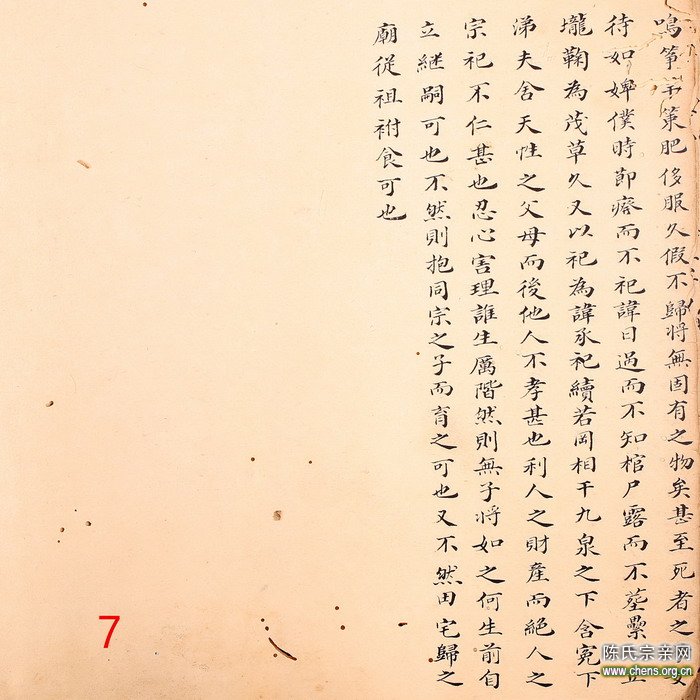 鳴箏策肥侈服久假不歸將無固有之物矣甚至死者之
待如婢僕時節瘵而不祀諱日過而不知棺尸露而不塟壘
壠鞠為茂草久又以祀為諱承祀續若罔相干九泉之下含冤下
涕夫舍天性之父母而後他人不孝甚也利人之財產而絕人之
宗祀不仁甚也忍心害理誰生厲階然則無子將如之何生前自
立継嗣可也不然則抱同宗之子而育之可也又不然田宅歸之
廟從祖祔食可也
7
陈氏宗亲网
www.chens.org.cn